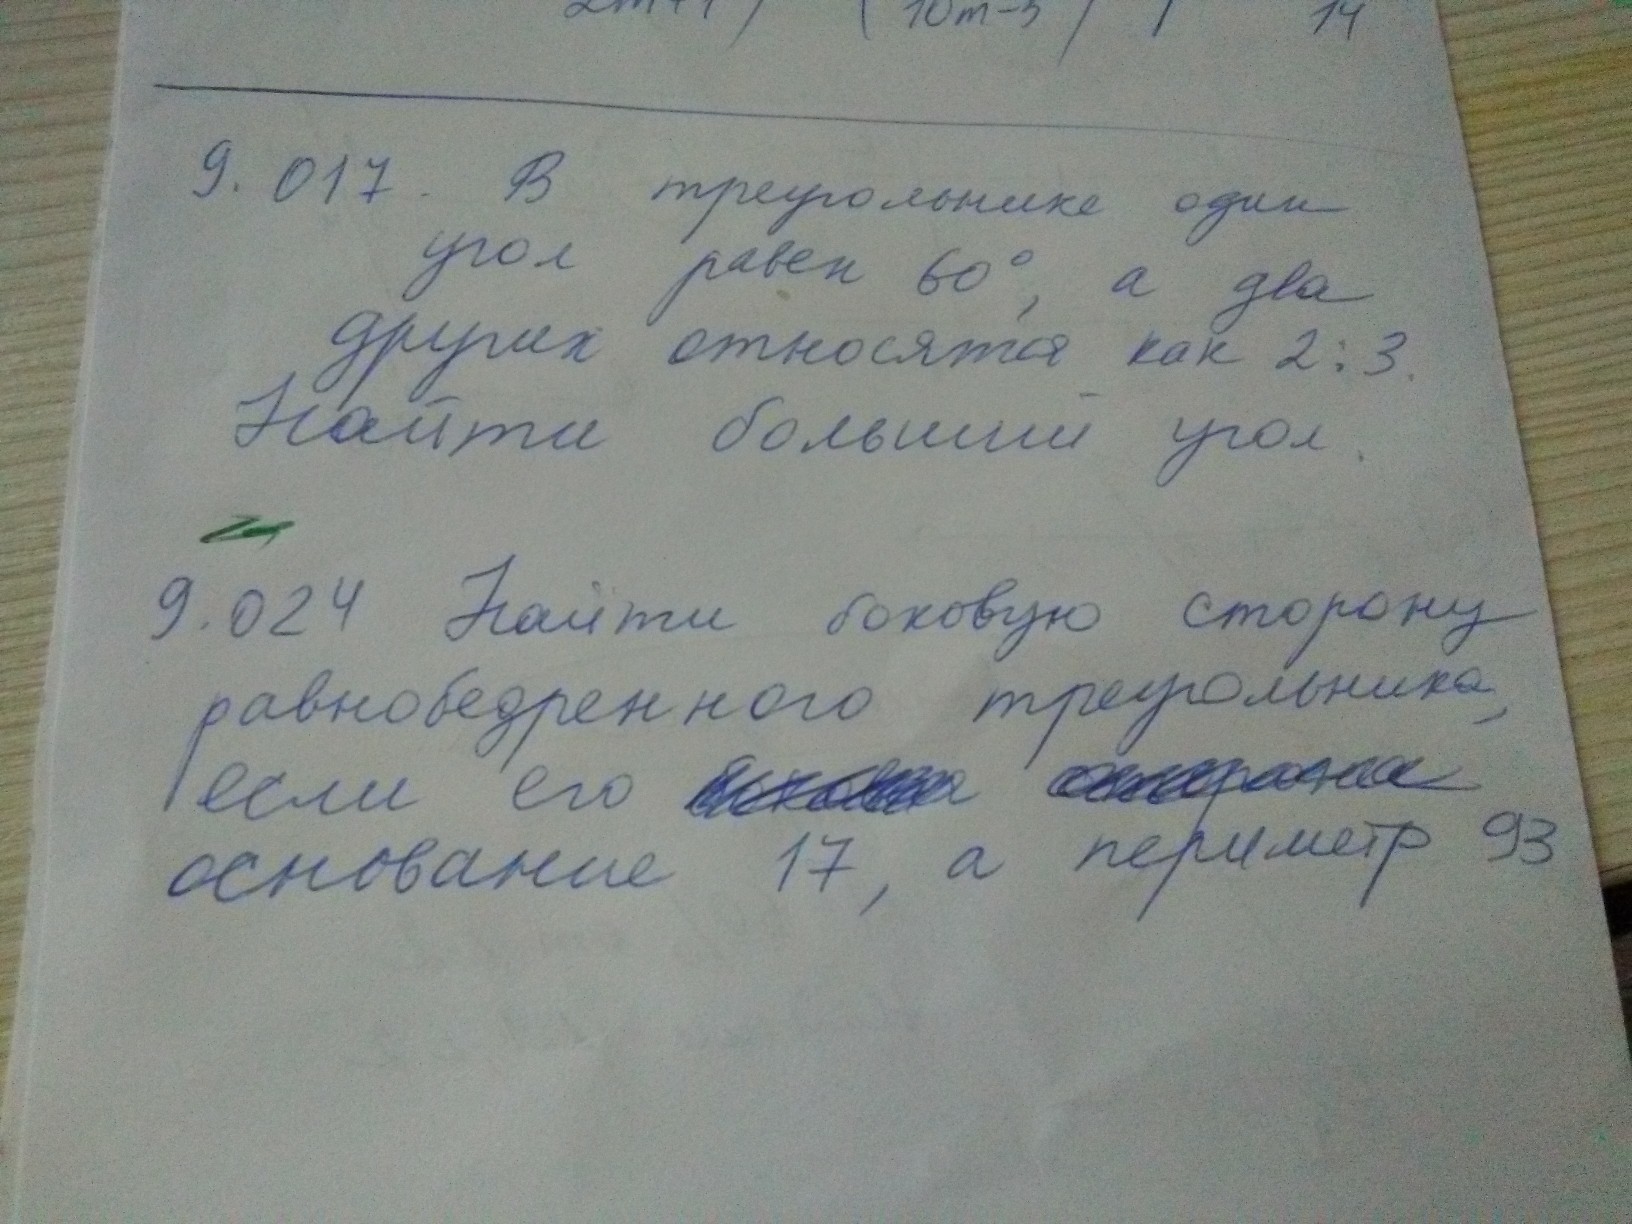 2m+1 ) ( 10m-5 ) 14
9.017. В треугольнике один
угол равен 60°, а два
других относятся как 2:3.
Найти больший угол.
9.024 Найти боковую сторону
равнобедренного треугольника,
если его
основание 17, а периметр 93